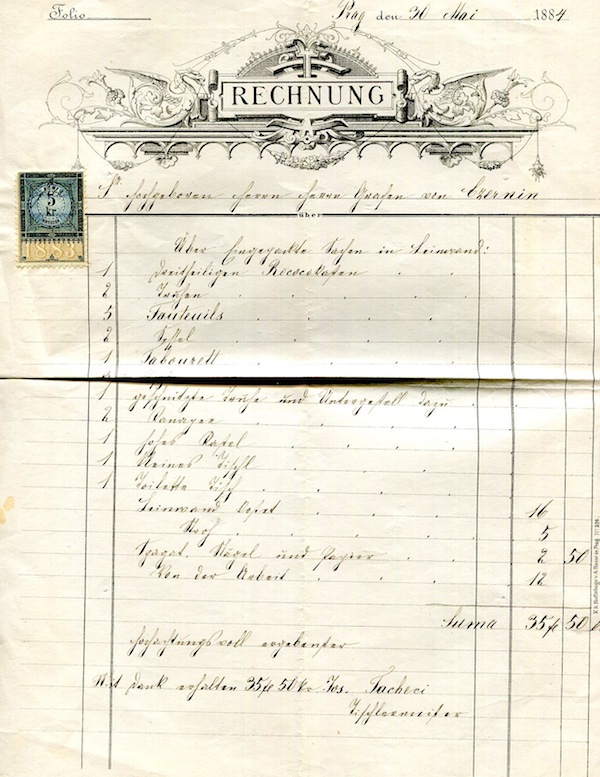 Folio
Prag den 30 Mai 1884
RECHNUNG
5
kr
1883
Sr Hochgeboren Herrn Herrn Grafen von Czernin
über
Über Eingepackte Sachen in Leinwand:
1 dreitheiligen Rococokasten
2 Truhen
5 Fauteuils
2 Sessel
1 Tabourett
1
geschnitzte Truhe und Untergestell dazu
2 Kanapee
1 hohes
1 Kleines Tischl
1 Toilette Tisch
Leinwand 16
Stroh 5
Spagat. Nägel und Papier 2 50
Von der Arbeit 12
Suma 35 fl 50
Hochachtungsvoll ergebenster
Mit Dank erhalten 35 fl 50 kr Jos. Tacheci
Tischlermeister